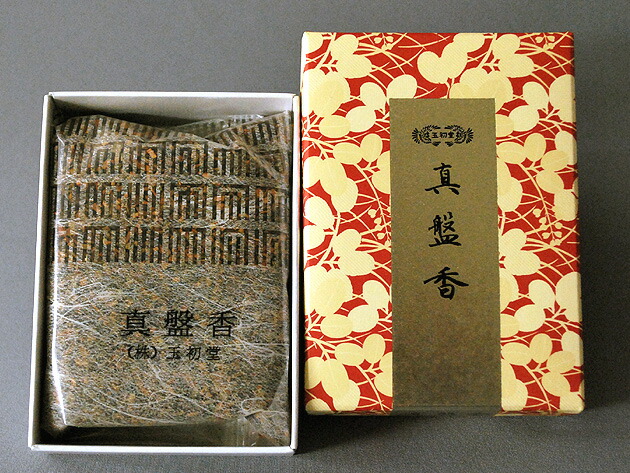 真盤香
(株)玉初堂
玉初堂
真盤香